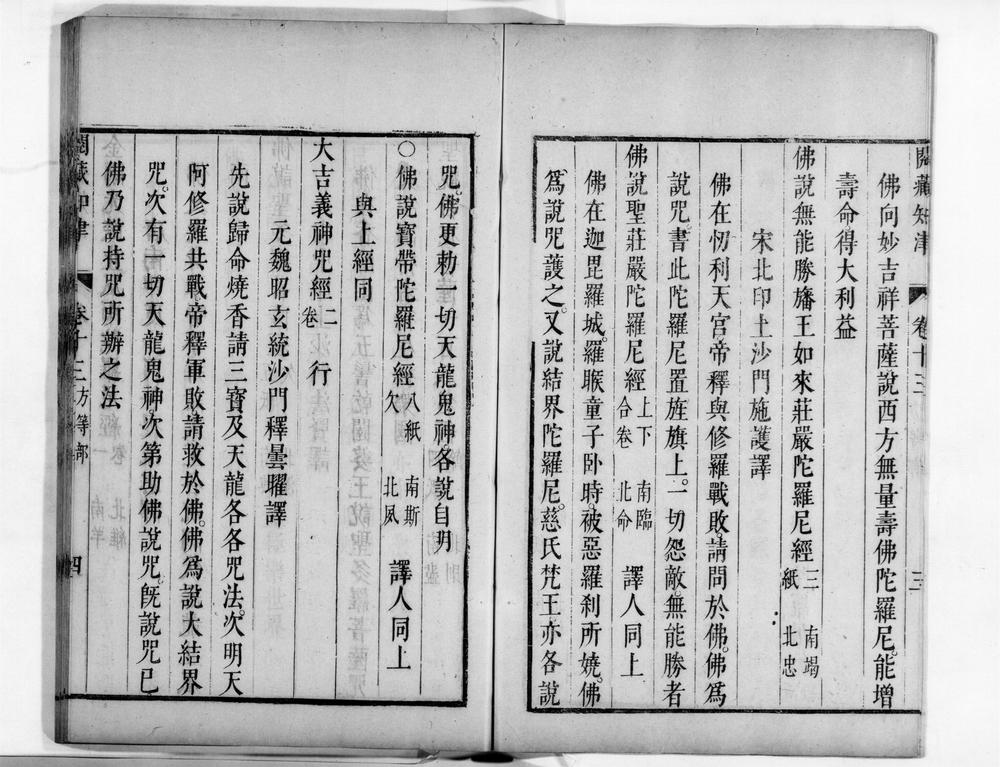 閱藏知津　卷十三　三
佛向妙吉祥菩薩說西方無量壽佛陀羅尼。能增
壽命得大利益
佛說無能勝旛王如來莊嚴陀羅尼經 三紙 南竭 北忠
宋北印土沙門施護譯
佛在忉利天宮帝釋與修羅戰敗。請問於佛。佛爲
說咒。書此陀羅尼置旌旗上。一切怨敵。無能勝者
佛說聖莊嚴陀羅尼經 上下合卷 南臨 北命 譯人同上
佛在迦毘羅城。羅睺童子卧時。被惡羅刹所嬈。佛
爲說咒護之。又說結界陀羅尼。慈氏梵王亦各說
咒。佛更勅一切天龍鬼神各說自明
○佛說寶帶陀羅尼經 八紙欠 南斯 北夙 譯人同上
佛與上經同
大吉義神咒經 二卷 行
元魏昭玄統沙門釋曇曜譯
先說歸命燒香請三寶及天龍各各咒法。次明天
阿修羅共戰帝釋軍敗請救於佛。佛爲說大結界
咒。次有一切天龍鬼神。次第助佛說咒。旣說咒已
佛乃說持咒所辦之法
閱藏知津　卷十三　方等部　四